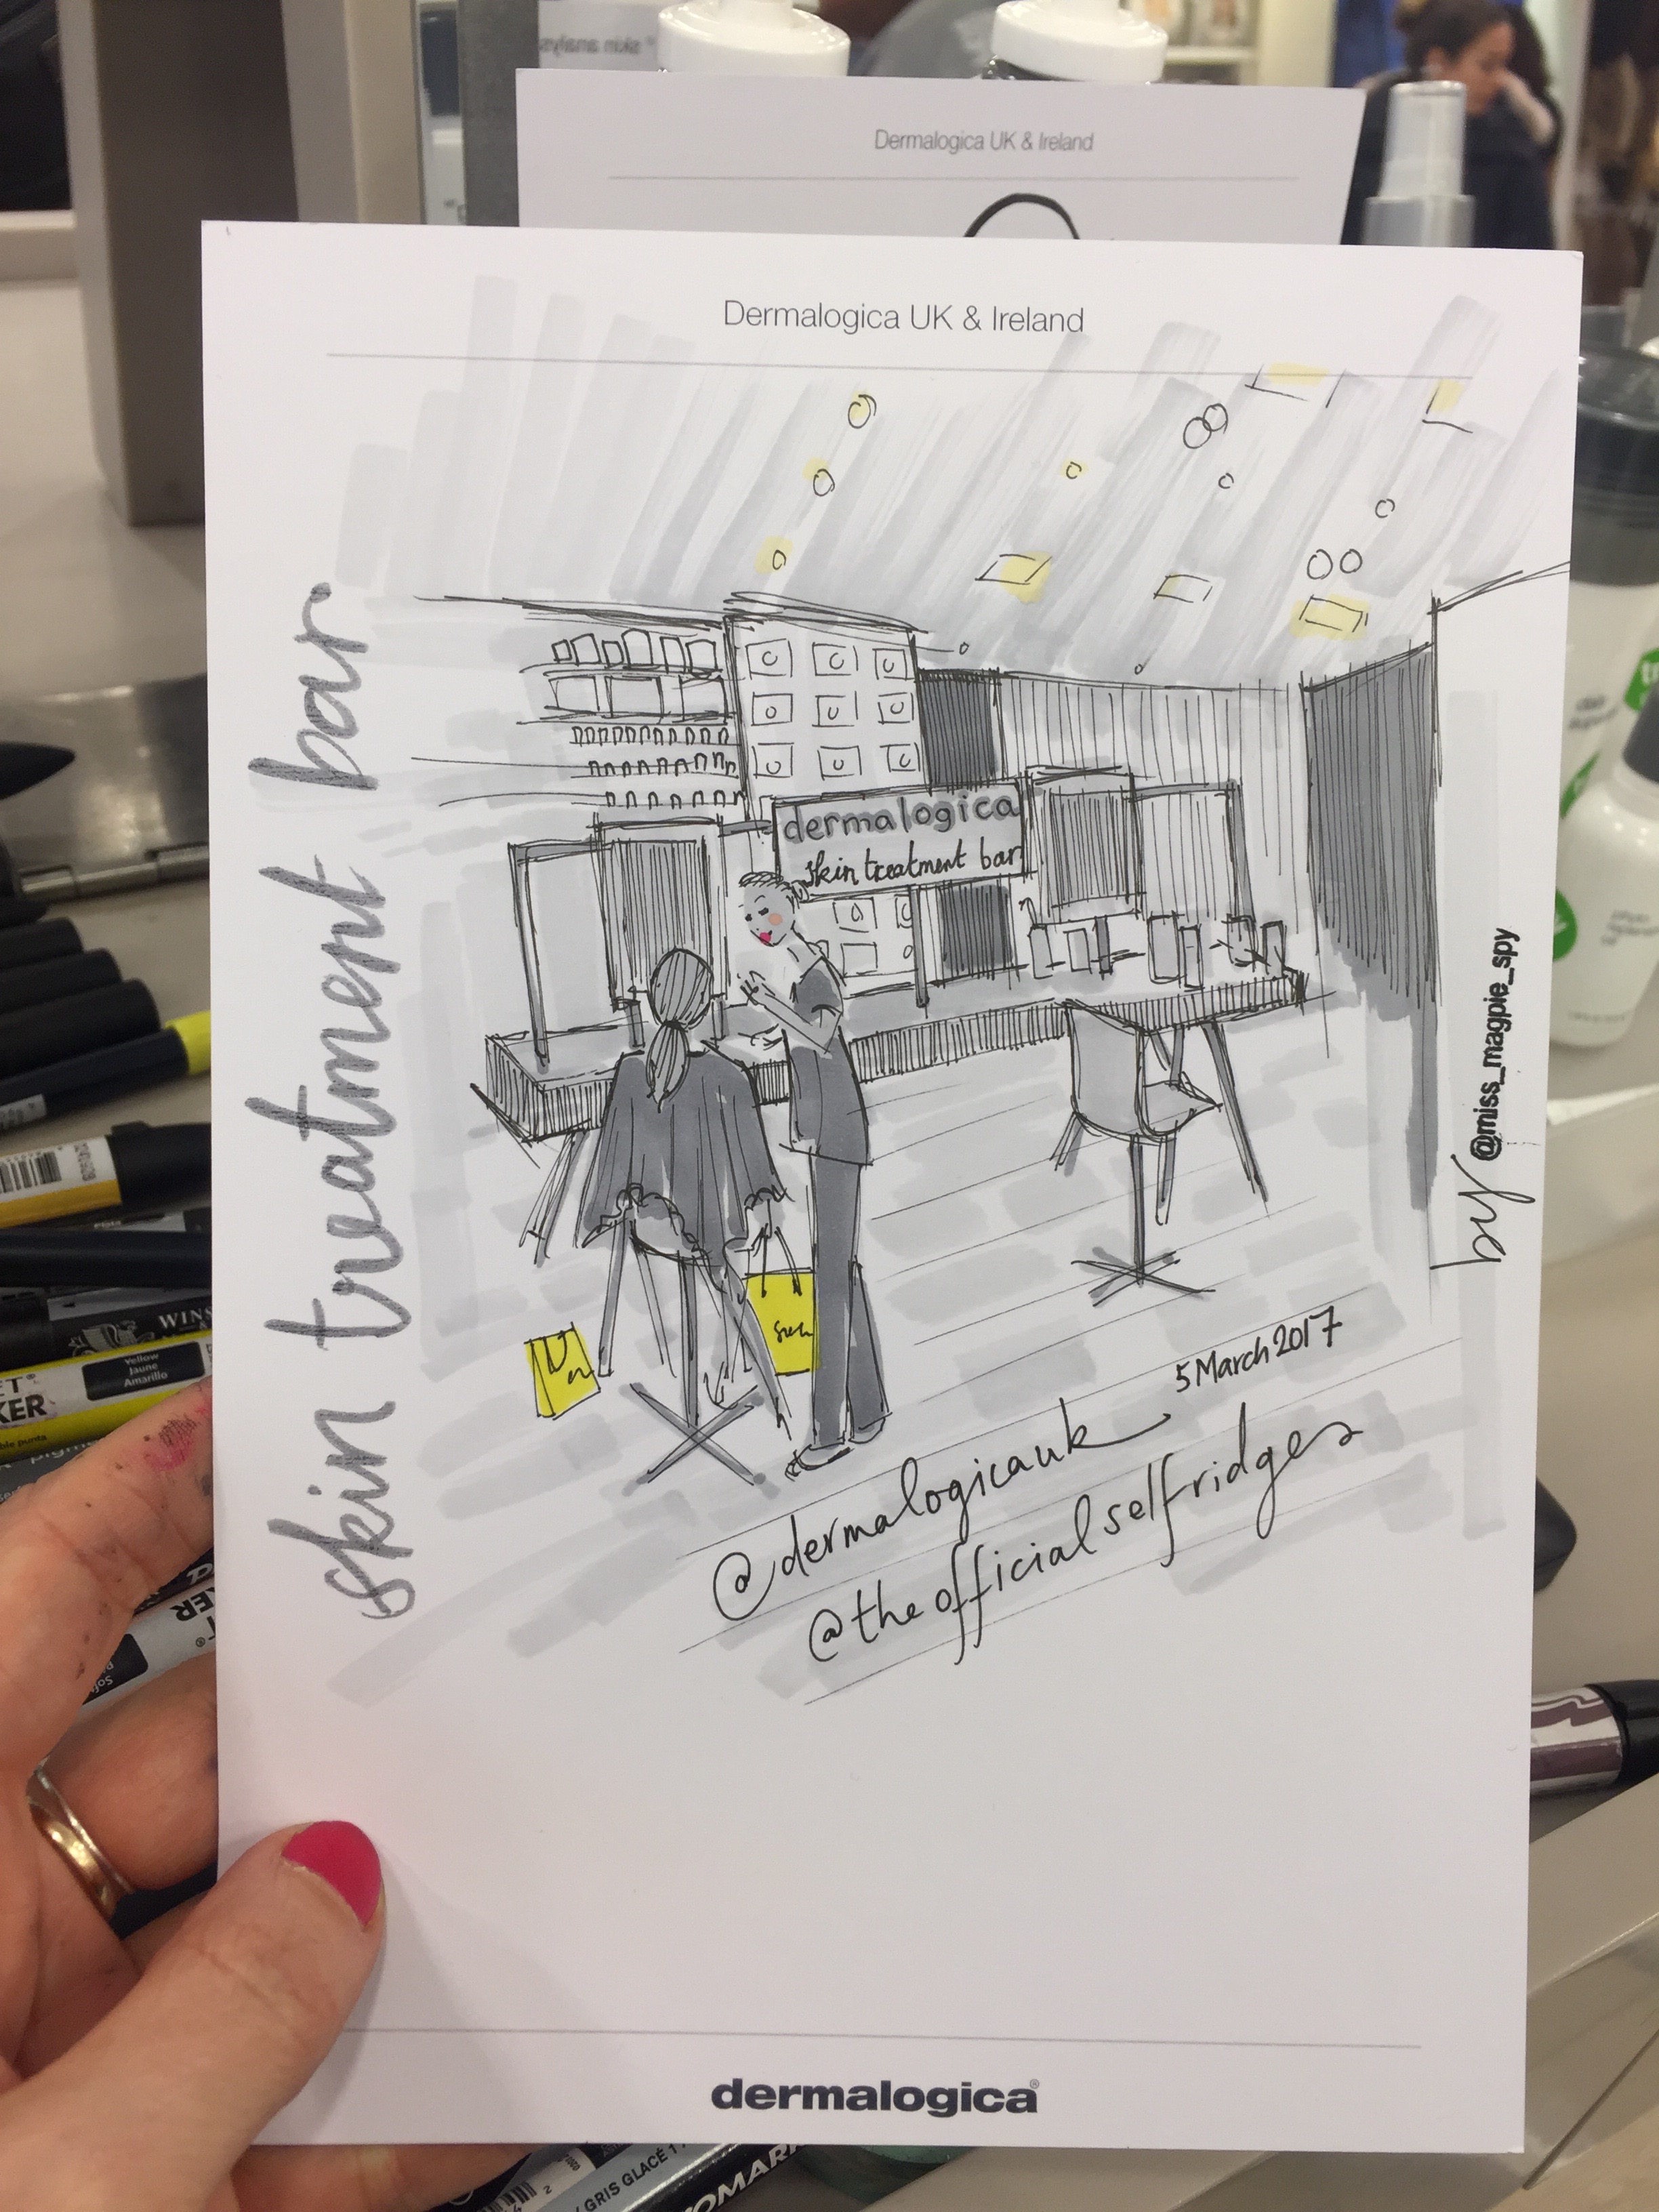 Dermalogica UK & Ireland
Dermalogica UK & Ireland
skin treatment bar
dermalogica
skin treatment bar
by @miss_magpie_spy
5 March 2017
@dermalogicauk
@theofficialselfridges
dermalogica
Yellow
Jaune
Amarillo
WINS
KER
GRIS GLACÉ 1